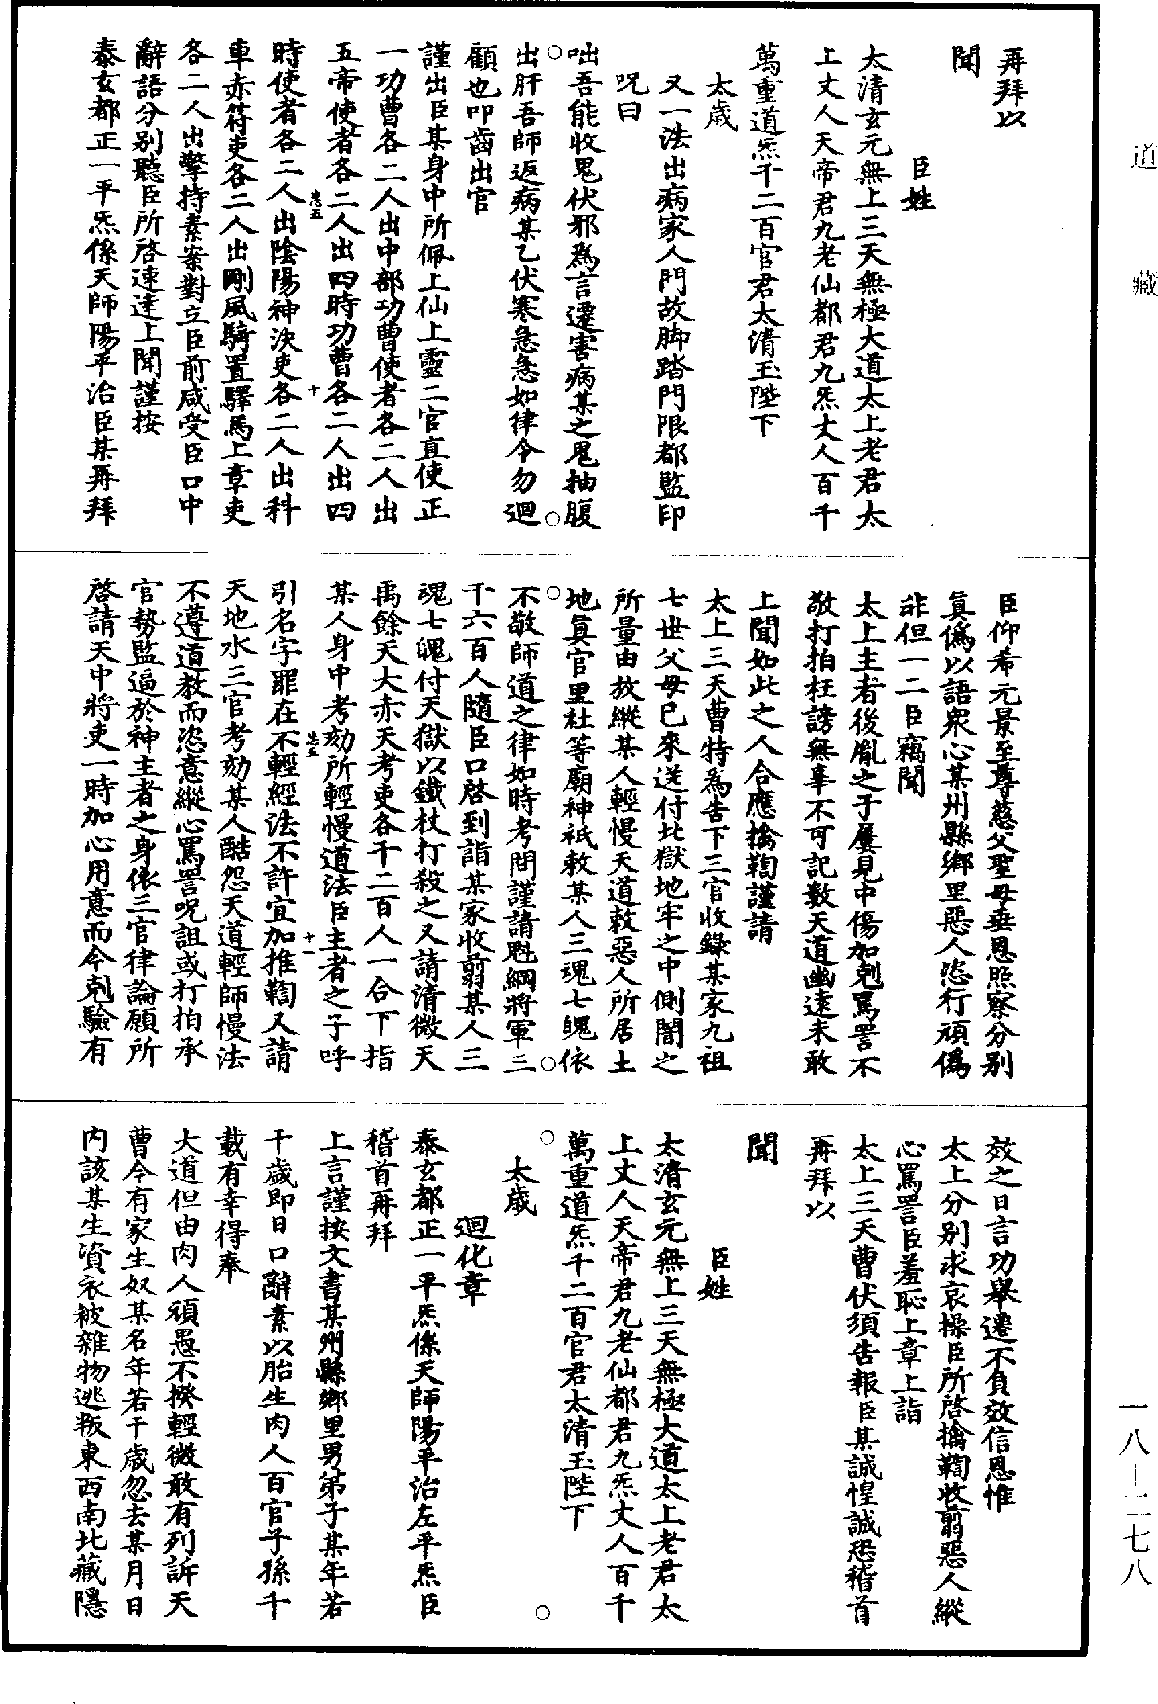 道藏
再拜以
聞
臣姓
太清玄元無上三天無極大道太上老君太
上丈人天帝君九老仙都君九炁丈人百千
萬重道炁千二百官君太清玉陛下
太歲
又一法出病家人門故脚踏門限都監印
呪曰
咄吾能收鬼伏邪爲言遷害病某之鬼抽腹
出肝吾師返病某乙伏寒急急如律令勿迴
顧也叩齒出官
謹出臣某身中所佩上仙上靈二官直使正
一功曹各二人出中部功曹使者各二人出
五帝使者各二人出四時功曹各二人出四
時使者各二人出陰陽神決吏各二人出科
車赤符吏各二人出剛風騎置驛馬上章吏
各二人出擎持素案對立臣前咸受臣口中
辭語分別聽臣所啓速達上聞謹按
泰玄都正一平炁係天師陽平治臣某再拜
臣仰希元景至尊慈父聖母垂恩照察分別
真僞以語衆心某州縣鄉里惡人恣行頑僞
非但一二臣竊聞
太上主者後胤之子屢見中傷加剋罵詈不
敬打拍枉謗無辜不可記數天道幽遠未敢
上聞如此之人合應擒鞫謹請
太上三天曹特為告下三官收錄某家九祖
七世父母已來送付北獄地牢之中側闇之
所量由放縱某人輕慢天道敕惡人所居土
地真官里社等廟神祇敕某人三魂七魄依
不敬師道之律如時考問謹請魁綱將軍二
千六百人隨臣口啓到詣某家收翦某人三
魂七魄付天獄以鐵杖打殺之又請清微天
禹餘天大赤天考吏各千二百人一合下指
某人身中考劾所輕慢道法臣主者之子呼
引名字罪在不輕經法不許宜加推鞫又請
天地水三官考劾某人酷怨天道輕師慢法
不遵道教而恣意縱心罵詈呪詛或打拍承
官勢監逼於神主者之身依三官律論願所
啓請天中將吏一時加心用意而令剋驗有
效之日言功舉遷不負效信恩惟
太上分別求哀操臣所啓擒鞫收翦惡人縱
心罵詈臣羞恥上章上詣
太上三天曹伏須告報臣某誠惶誠恐稽首
再拜以
聞
臣姓
太清玄元無上三天無極大道太上老君太
上丈人天帝君九老仙都君九炁丈人百千
萬重道炁千二百官君太清玉陛下
太歲
迴化章
泰玄都正一平炁係天師陽平治左平炁臣
稽首再拜
上言謹按文書某州縣鄉里男弟子某年若
干歲即日口辭素以胎生肉人百官子孫千
載有幸得奉
大道但由肉人頑愚不揆輕微敢有列訴天
曹今有家生奴某名年若干歲忽去某月日
內該某生資衣被雜物逃叛東西南北藏隱
一八—二七八